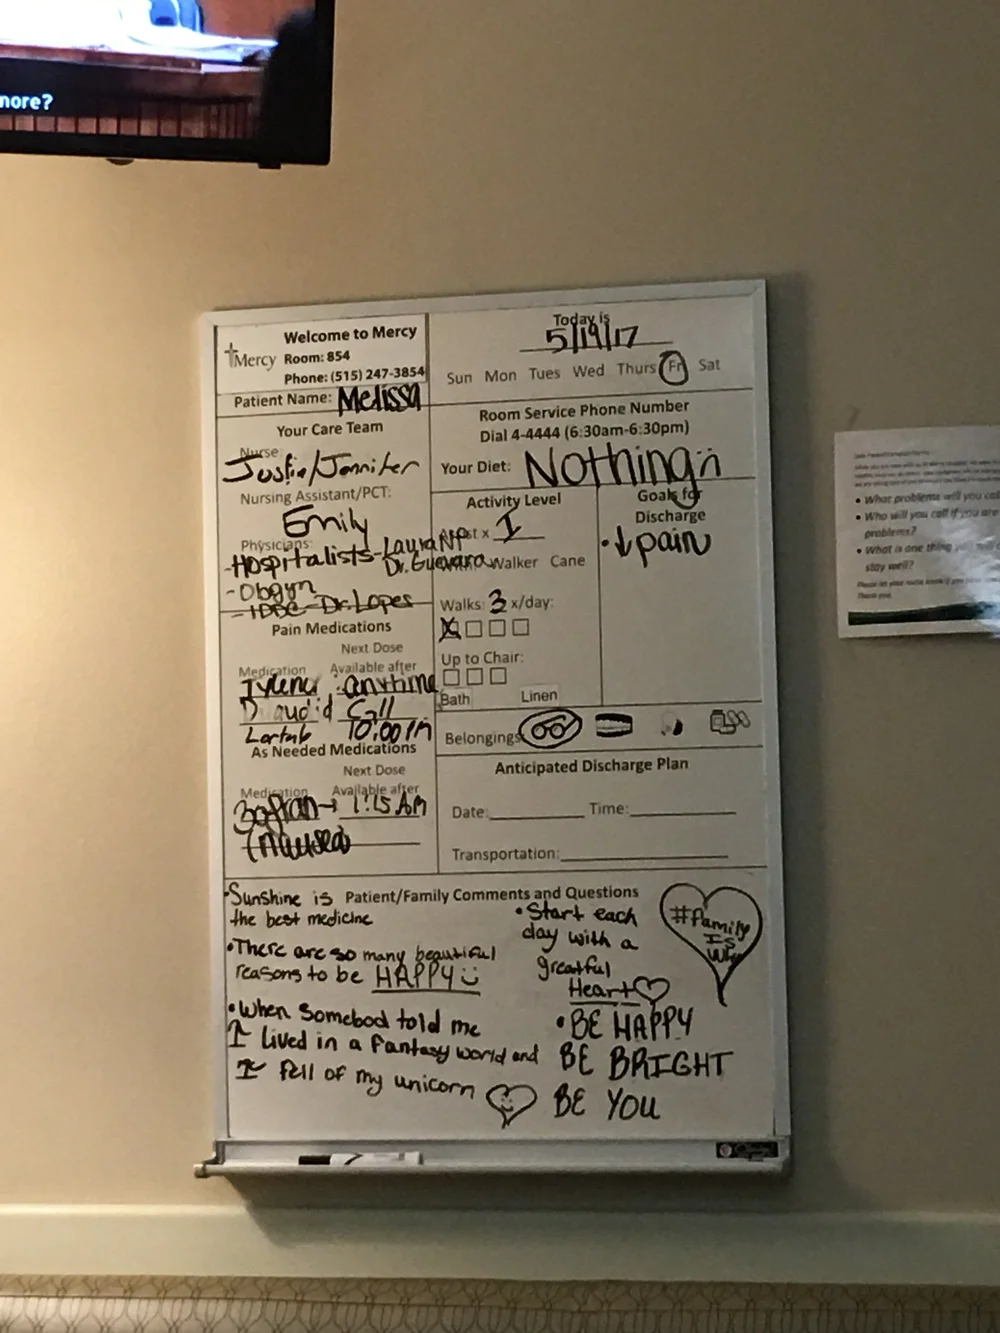 nore?
Welcome to Mercy
Mercy
Room: 854
Phone: (515) 247-3854
Patient Name: Melissa
Today is
5/19/17
Sun Mon Tues Wed Thurs Fri Sat
Room Service Phone Number
Dial 4-4444 (6:30am-6:30pm)
Your Diet: Nothing
Your Care Team
Nurse:
/Jennifer
Nursing Assistant/PCT:
Emily
Physicians:
-Hospitalists-Laura NP
Dr. Guevara
-Obgyn
-IDBC-Dr. Lopes
Activity Level
Assist x 1
Walker Cane
Walks: 3 x/day:
Up to Chair:
Bath Linen
Goals for
Discharge
• ↓ pain
Pain Medications
Next Dose
Medication Available after
anytime
Call
Lortab 10:00 Pm
As Needed Medications
Next Dose
Medication Available after
Zofran → 1:15 AM
(nausea)
Belongings:
Anticipated Discharge Plan
Date: Time:
Transportation:
Patient/Family Comments and Questions
•Sunshine is
the best medicine
•There are so many beautiful
reasons to be HAPPY
•When somebod told me
I lived in a fantasy world and
I fell of my unicorn
•Start each
day with a
greatful
Heart
•BE HAPPY
BE BRIGHT
BE YOU
#family
Is
Why
• What problems will you
• Who will you call if you are
problems?
• What is one thing you
stay well?
Thank you.